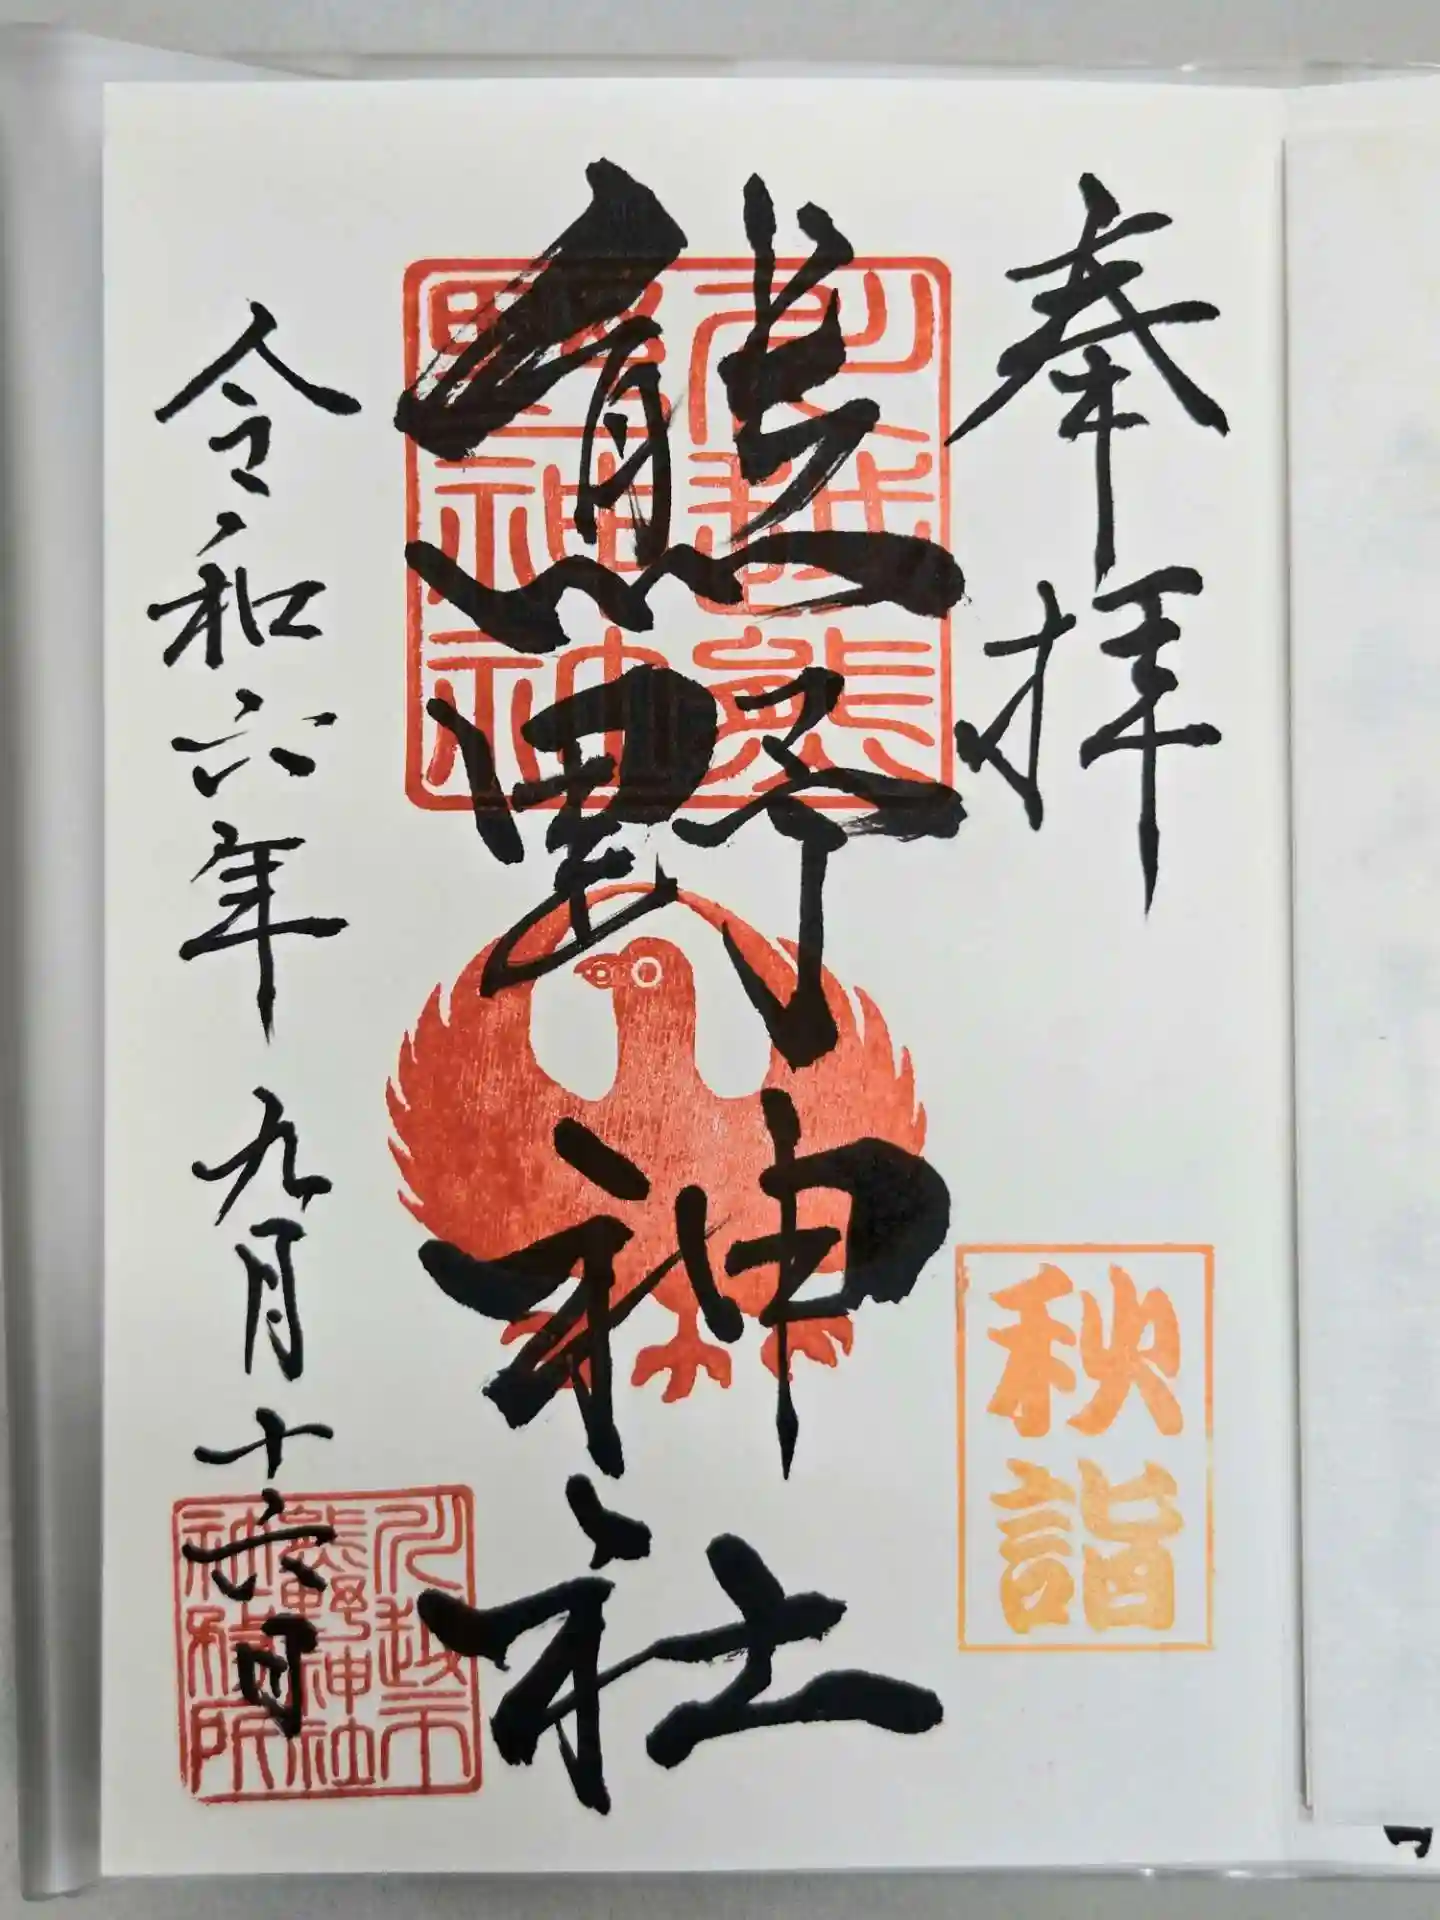 奉拝
秋詣
熊野神社
川越熊
野神社
令和六年九月十六日
川越市
熊野神社
社務所